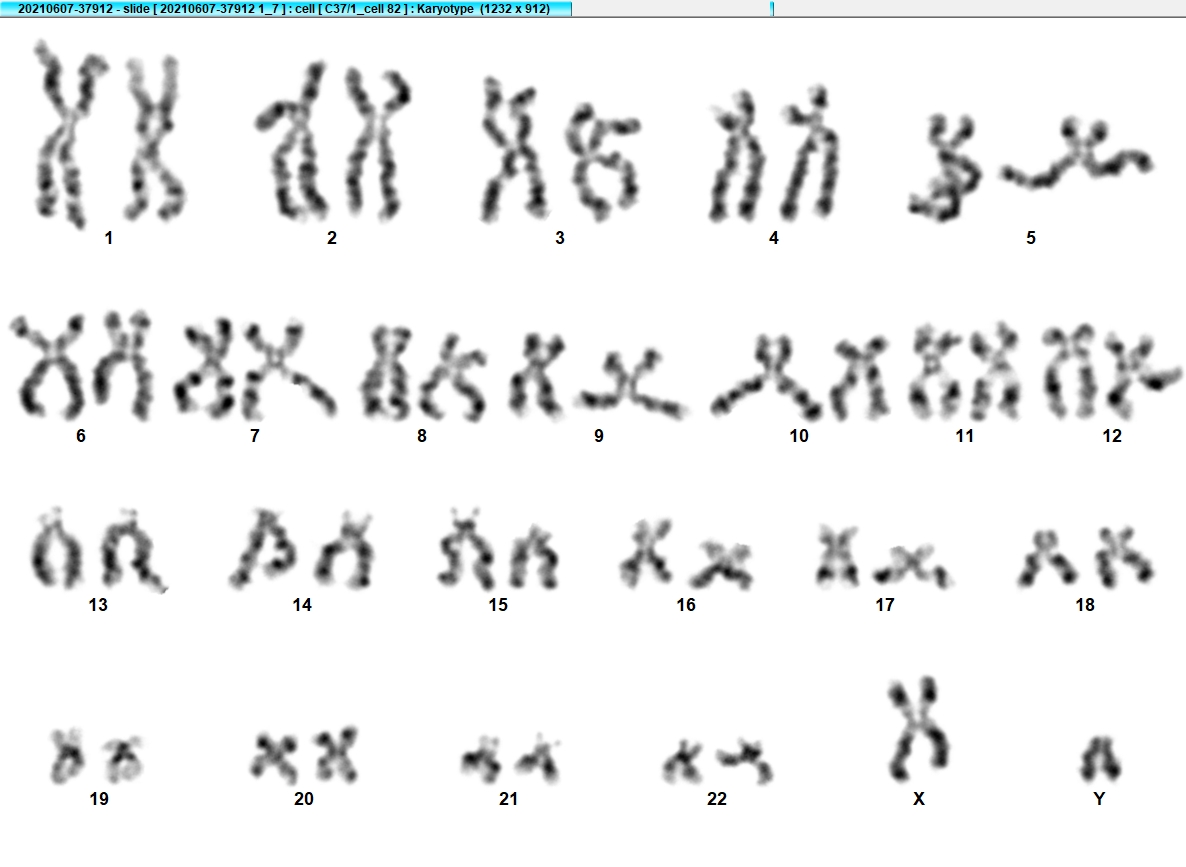 20210607-37912 - slide [ 20210607-37912 1_7 ] : cell [ C37/1_cell 82 ] : Karyotype (1232 x 912)
1 2 3 4 5
6 7 8 9 10 11 12
13 14 15 16 17 18
19 20 21 22 X Y